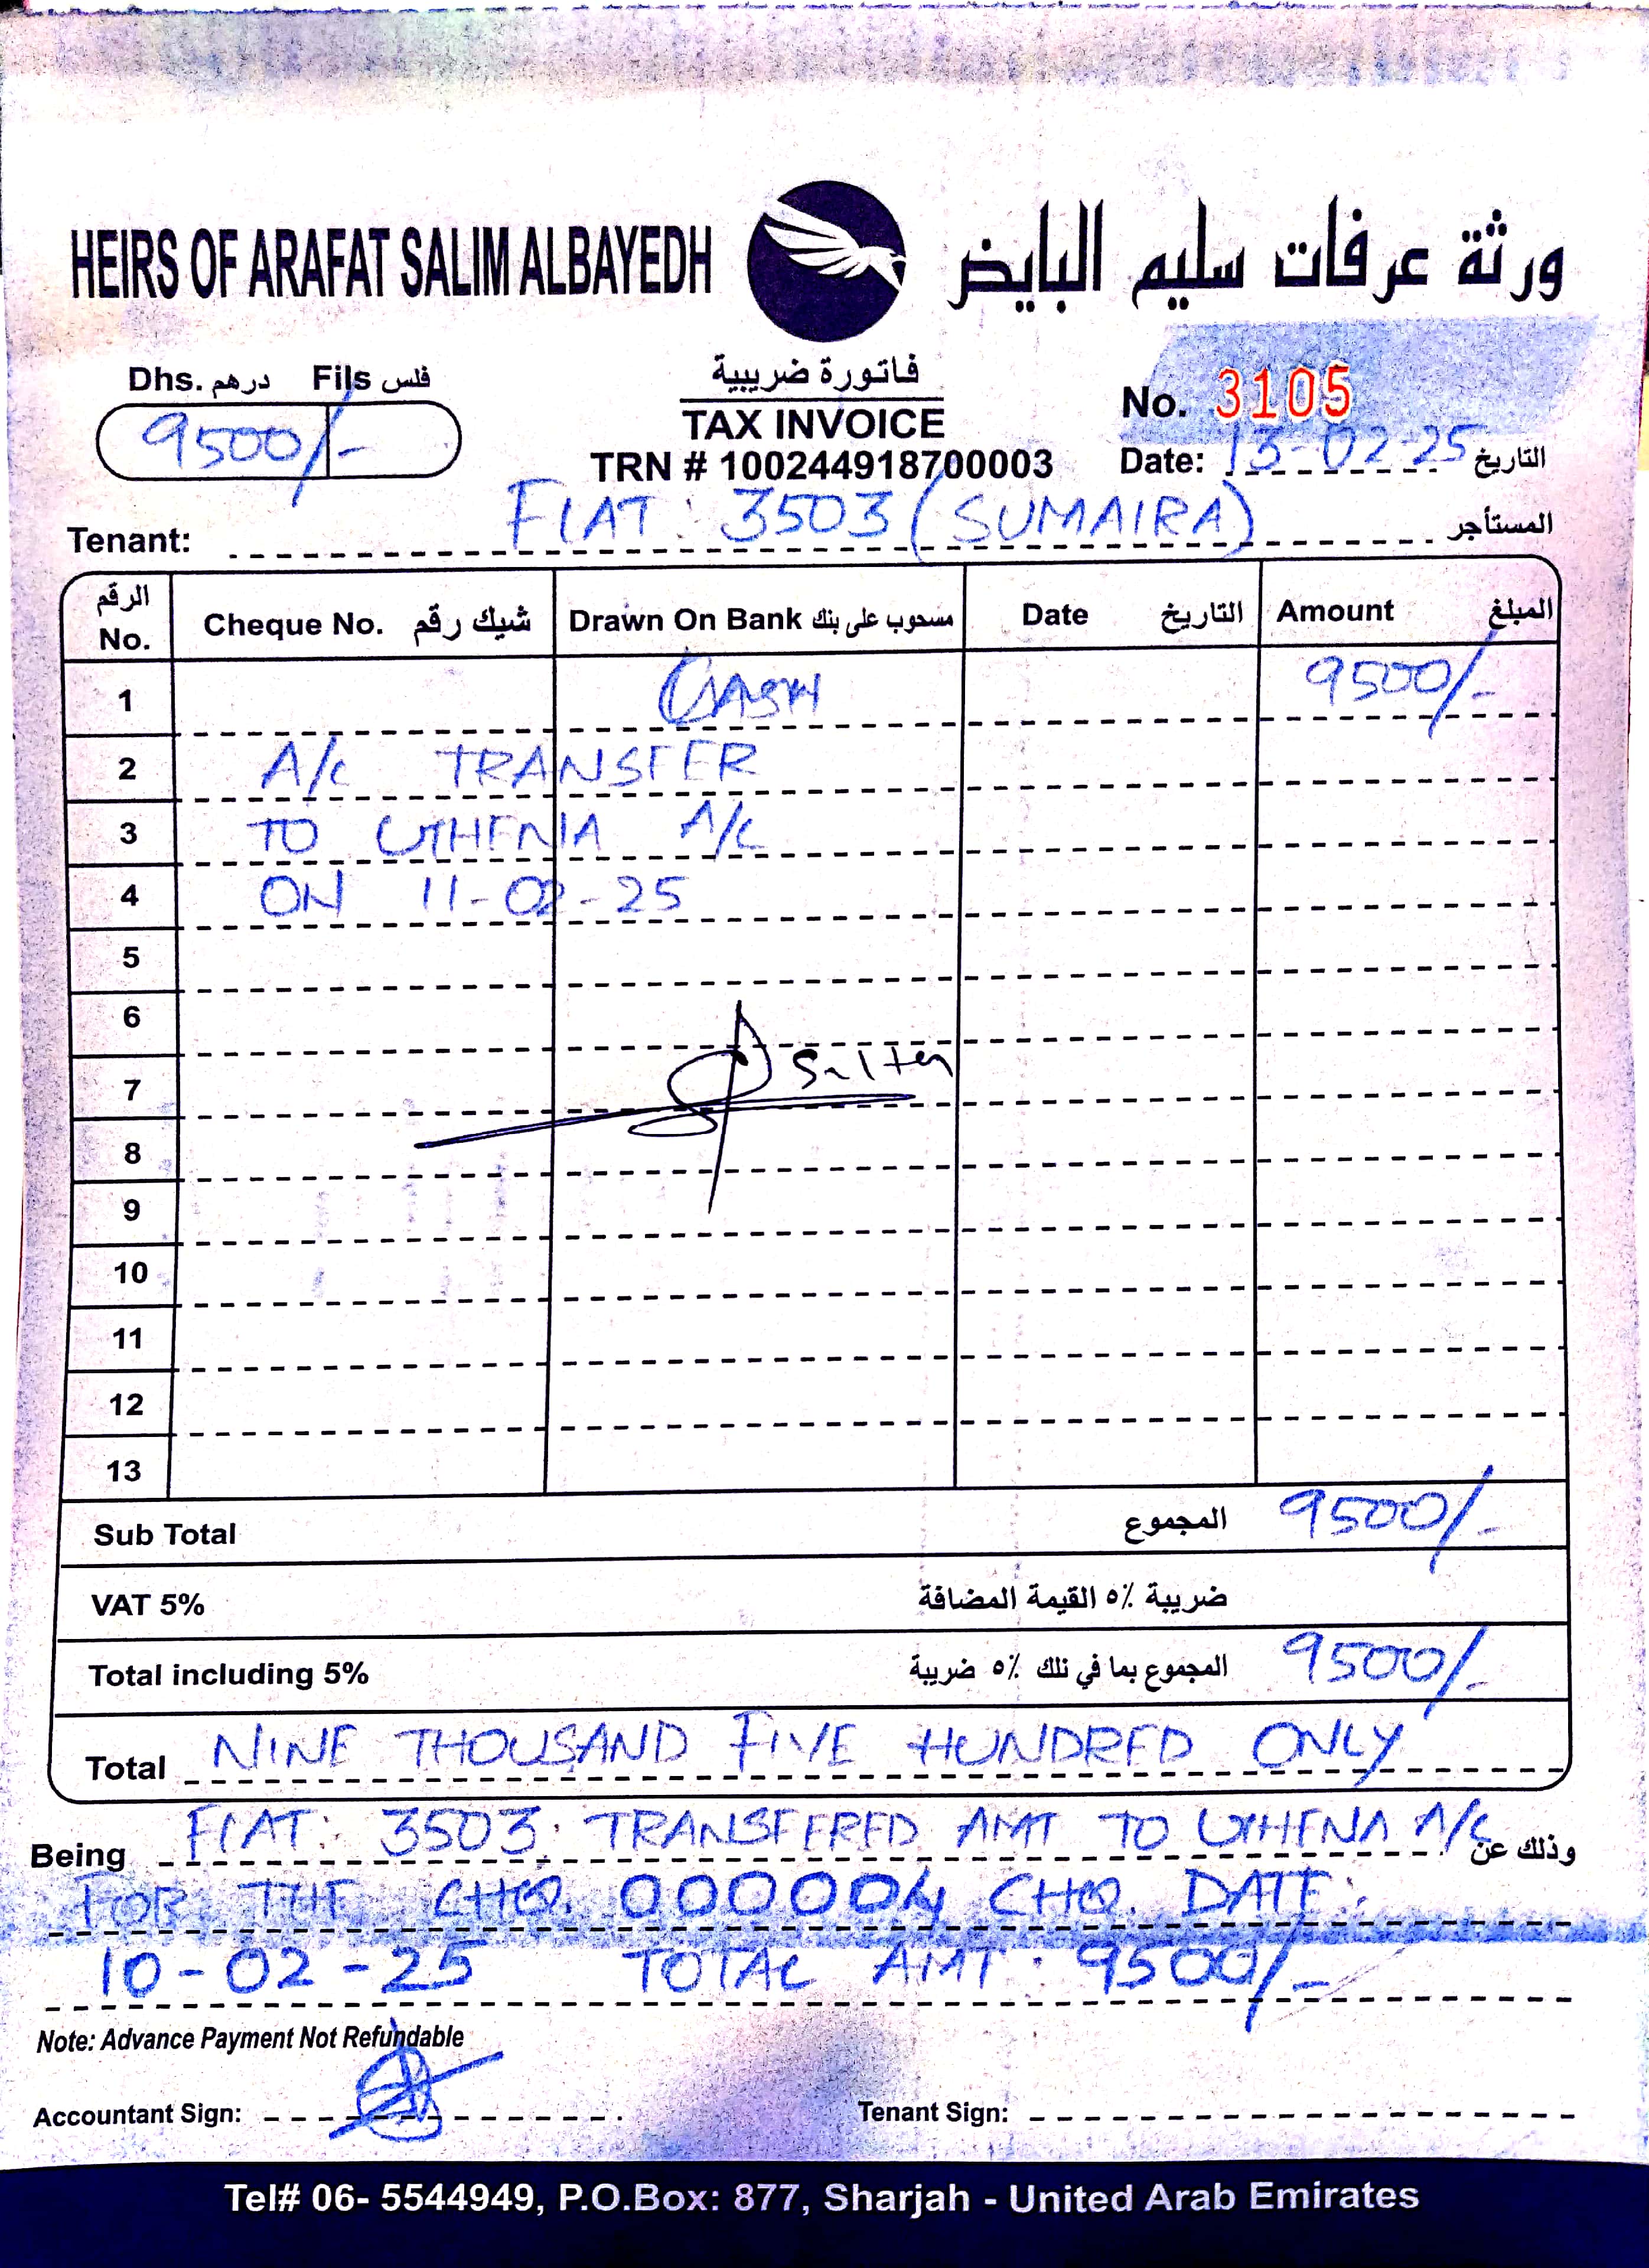 HEIRS OF ARAFAT SALIM ALBAYEDH ورثة عرفات سليم البايض
Dhs. درهم Fils فلس
9500/-
فاتورة ضريبية
TAX INVOICE
TRN # 100244918700003
No. 3105
Date: 13-02-25 التاريخ
Tenant: FLAT: 3503 (SUMAIRA) المستأجر
الرقم No. Cheque No. شيك رقم Drawn On Bank مسحوب على بنك Date التاريخ Amount المبلغ
1 CASH 9500/-
2 A/C TRANSFER
3 TO UTHENIA A/C
4 ON 11-02-25
5
6
7 Sultan
8
9
10
11
12
13
Sub Total المجموع 9500/-
VAT 5% ضريبة ٥٪ القيمة المضافة
Total including 5% المجموع بما في تلك ٥٪ ضريبة 9500/-
Total NINE THOUSAND FIVE HUNDRED ONLY
Being FLAT: 3503: TRANSFERED AMT TO UTHENA A/C وذلك عن
FOR THE CHQ. 000004 CHQ. DATE:
10-02-25 TOTAL AMT: 9500/-
Note: Advance Payment Not Refundable
Accountant Sign: Tenant Sign:
Tel# 06- 5544949, P.O.Box: 877, Sharjah - United Arab Emirates